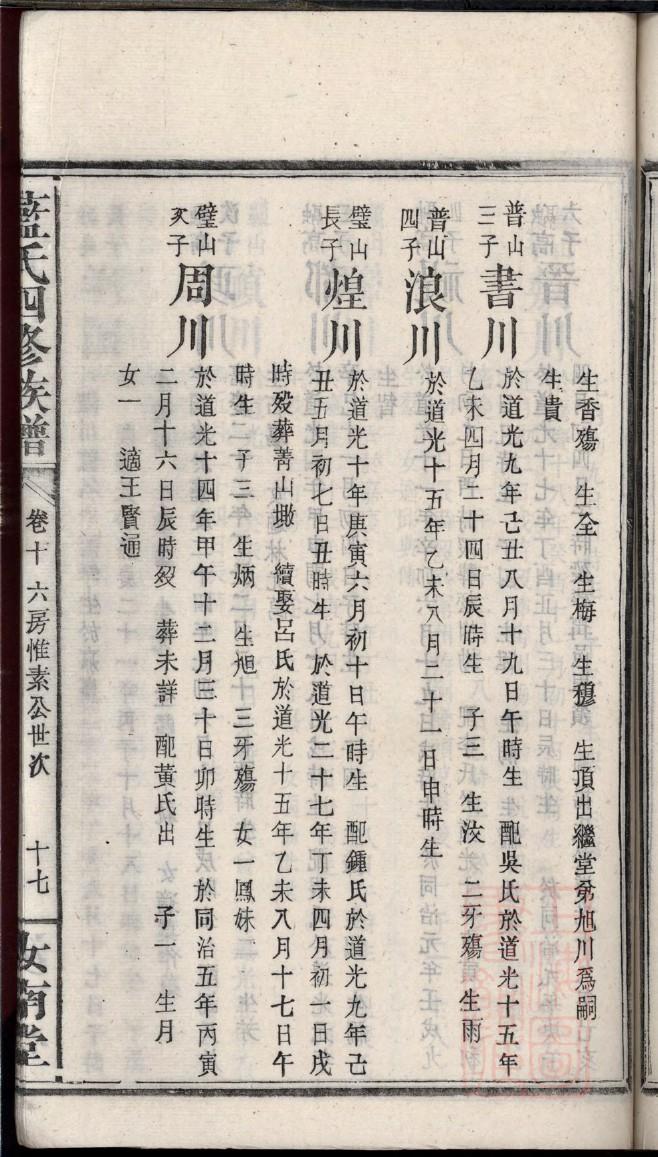 生香殤 生全 生梅 生𥠖 生頂出繼堂弟旭川爲嗣
生貴
普山三子 書川 於道光九年己丑八月十九日午時生 配吳氏於道光十五年
乙未四月二十四日辰時生 子三 生汝 二牙殤 生雨
普山四子 浪川 於道光十五年乙未八月二十一日申時生
璧山長子 煌川 於道光十年庚寅六月初十日午時生 配鍾氏於道光九年己
丑五月初七日丑時生 於道光二十七年丁未四月初一日戌
時歿葬菁山墈 續娶呂氏於道光十五年乙未八月十七日午
時生 子三 生炳 生旭 三牙殤 女一鳳妹
璧山次子 周川 於道光十四年甲午十二月三十日卯時生於同治五年丙寅
二月十六日辰時歿 葬未詳 配黃氏出 子一 生月
女一 適王賢通
藍氏四修族譜 卷十 六房惟素公世次 十七 汝南堂